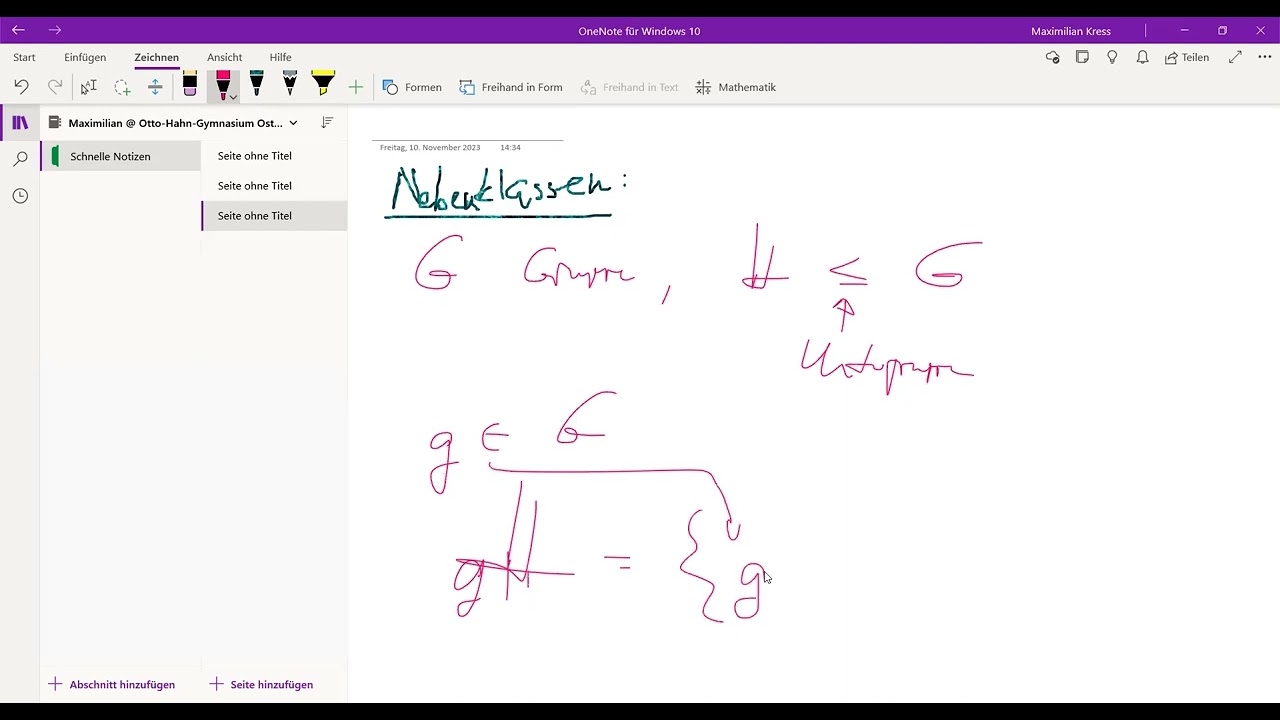 OneNote für Windows 10
Maximilian Kress
Start Einfügen Zeichnen Ansicht Hilfe
Teilen
Formen Freihand in Form Freihand in Text Mathematik
Maximilian @ Otto-Hahn-Gymnasium Ost...
Schnelle Notizen
Seite ohne Titel
Seite ohne Titel
Seite ohne Titel
Freitag, 10. November 2023 14:34
Nebenklassen:
G Gruppe, H ≤ G
↑
Untergruppe
g ∈ G
gH = { g
Abschnitt hinzufügen
Seite hinzufügen